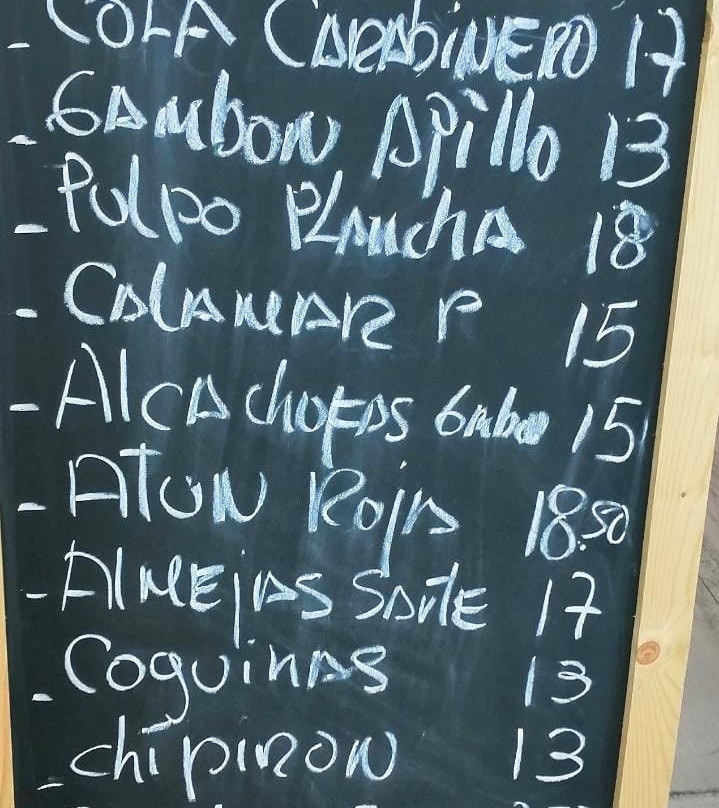 - COLA CARABINERO 17
- GAMBON APillo 13
- Pulpo PLAncha 18
- CALAMAR P 15
- AlcAchofAS Gambo 15
- ATUN Roja 18.50
- AlMEjAS SAuTE 17
- Coquinas 13
- chipiRON 13